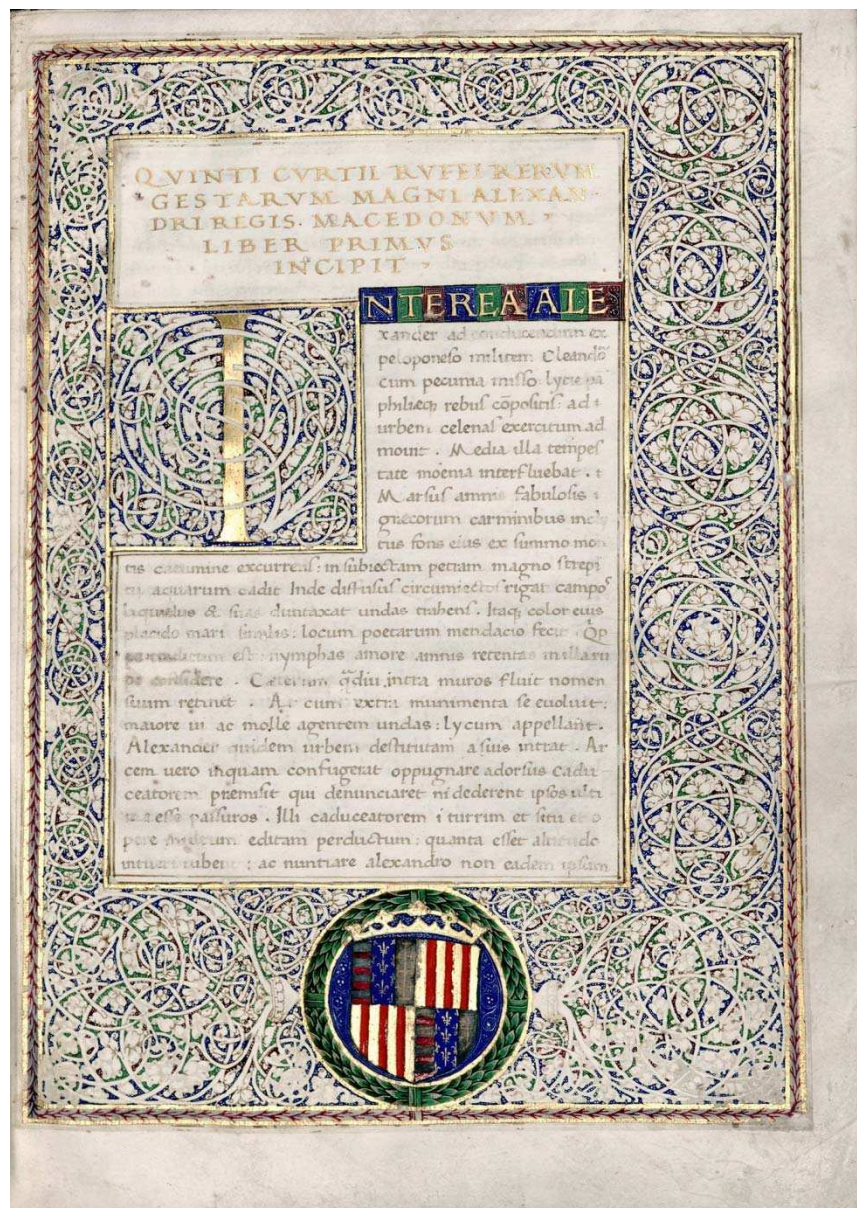 QVINTI CVRTII RVFFI RERVM
GESTARVM MAGNI ALEXAN
DRI REGIS. MACEDONVM.
LIBER PRIMVS
INCIPIT
INTEREA ALE
xander ad conducendum ex
peloponeso militem Cleandō
cum pecunia misso: lycie pā
philięq; rebus cōpositis: ad
urbem celenas exercitum ad
mouit. Media illa tempes
tate moenia interfluebat.
Marsus amnis fabulosis
gręcorum carminibus incly
tus fons eius ex summo mon
tis cacumine excurrens: in subiectam petram magno strepi
tu aquarum cadit Inde diffusus circumiectos rigat campos
liquidus & suas duntaxat undas trahens. Itaq; color eius
placido mari similis: locum poetarum mendacio fecit.
est: nymphas amore amnis retentas in illa ru
pe considere. Cęterum q̄diu intra muros fluit nomen
suum retinet. At cum extra munimenta se euoluit:
maiore ui ac molle agentem undas: lycum appellant.
Alexander quidem urbem destitutam a suis intrat. Ar
cem uero inquam confugerat oppugnare adorsus cadu
ceatorem premisit qui denunciaret ni dederent ipsos ulti
ma esse passuros. Illi caduceatorem i turrim et situ et o
pere editam perductum: quanta esset altitudo
intueri iubent: ac nuntiare alexandro non eadem ipsum